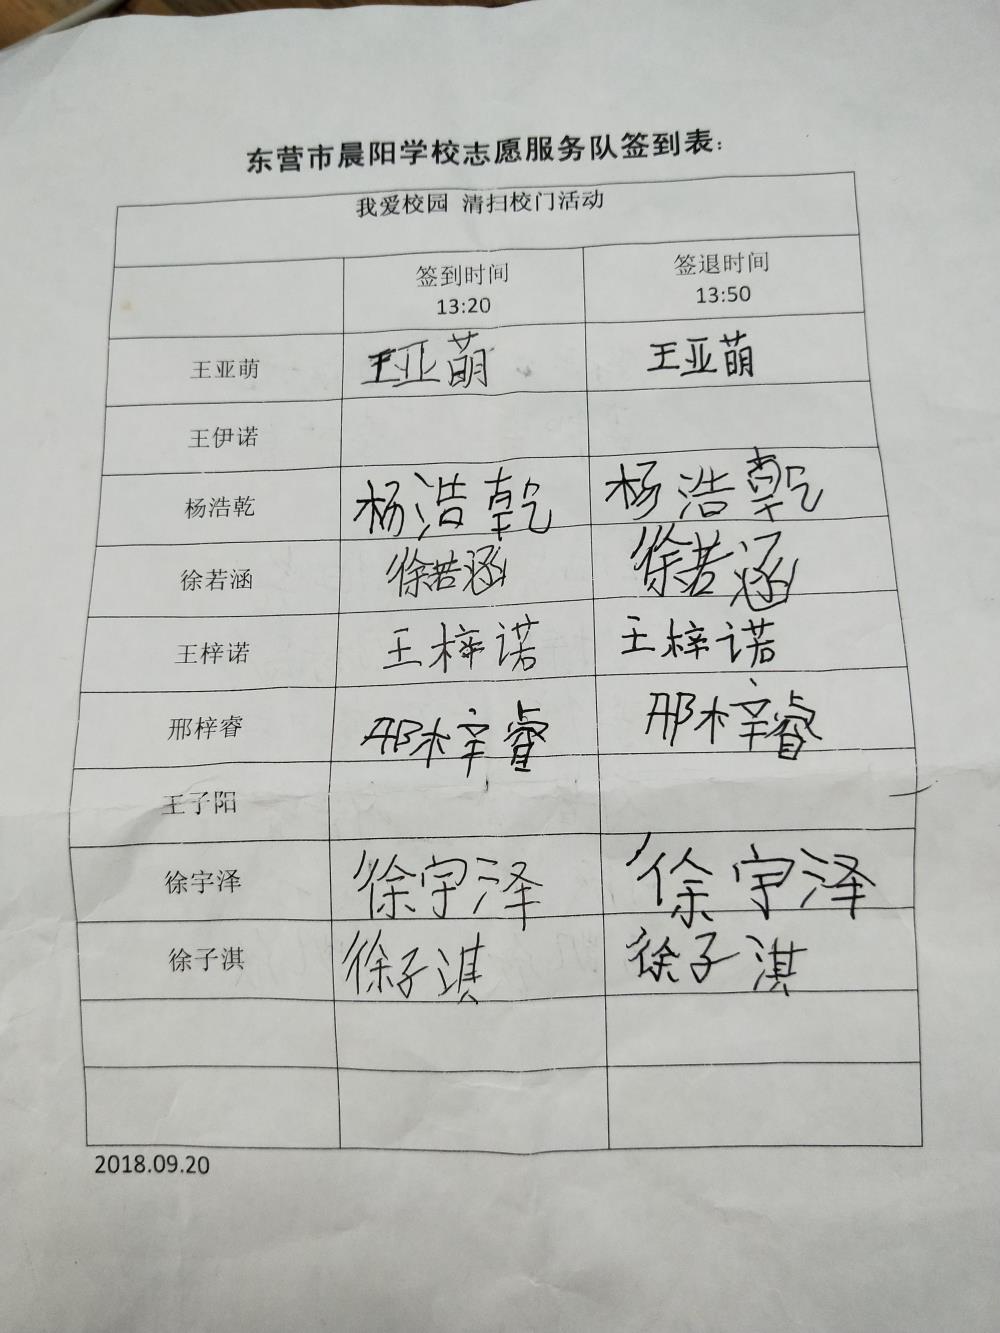 东营市晨阳学校志愿服务队签到表：
我爱校园 清扫校门活动
签到时间 签退时间
13:20 13:50
王亚萌 王亚萌 王亚萌
王伊诺
杨浩乾 杨浩乾 杨浩乾
徐若涵 徐若涵 徐若涵
王梓诺 王梓诺 王梓诺
邢梓睿 邢梓睿 邢梓睿
王子阳
徐宇泽 徐宇泽 徐宇泽
徐子淇 徐子淇 徐子淇
2018.09.20